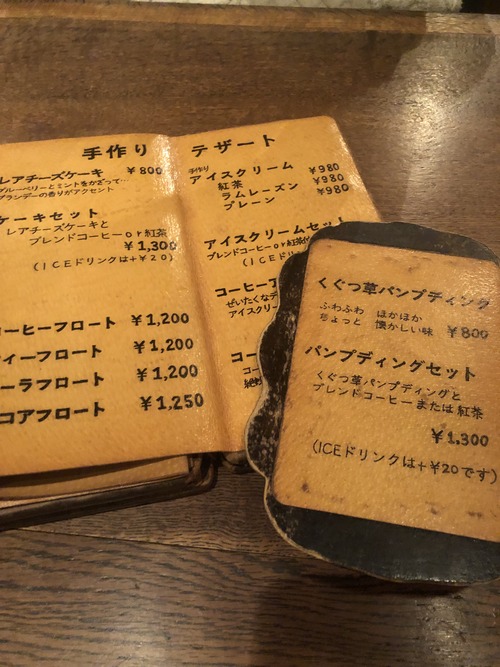 手作り
レアチーズケーキ ¥800
ブルーベリーとミントをかざって…
ブランデーの香りがアクセント
ケーキセット
レアチーズケーキと
ブレンドコーヒーor紅茶
¥1,300
(ICEドリンクは+¥20)
コーヒーフロート ¥1,200
ティーフロート ¥1,200
コーラフロート ¥1,200
ココアフロート ¥1,250
デザート
手作り
アイスクリーム ¥980
紅茶 ¥980
ラムレーズン ¥980
プレーン
アイスクリームセット
ブレンドコーヒーor紅茶
(ICE
コーヒー
ぜいたくな
アイスクリー
くぐつ草パンプディング
ふわふわ ほかほか
ちょっと 懐かしい味 ¥800
パンプディングセット
くぐつ草パンプディングと
ブレンドコーヒーまたは紅茶
¥1,300
(ICEドリンクは+¥20です)